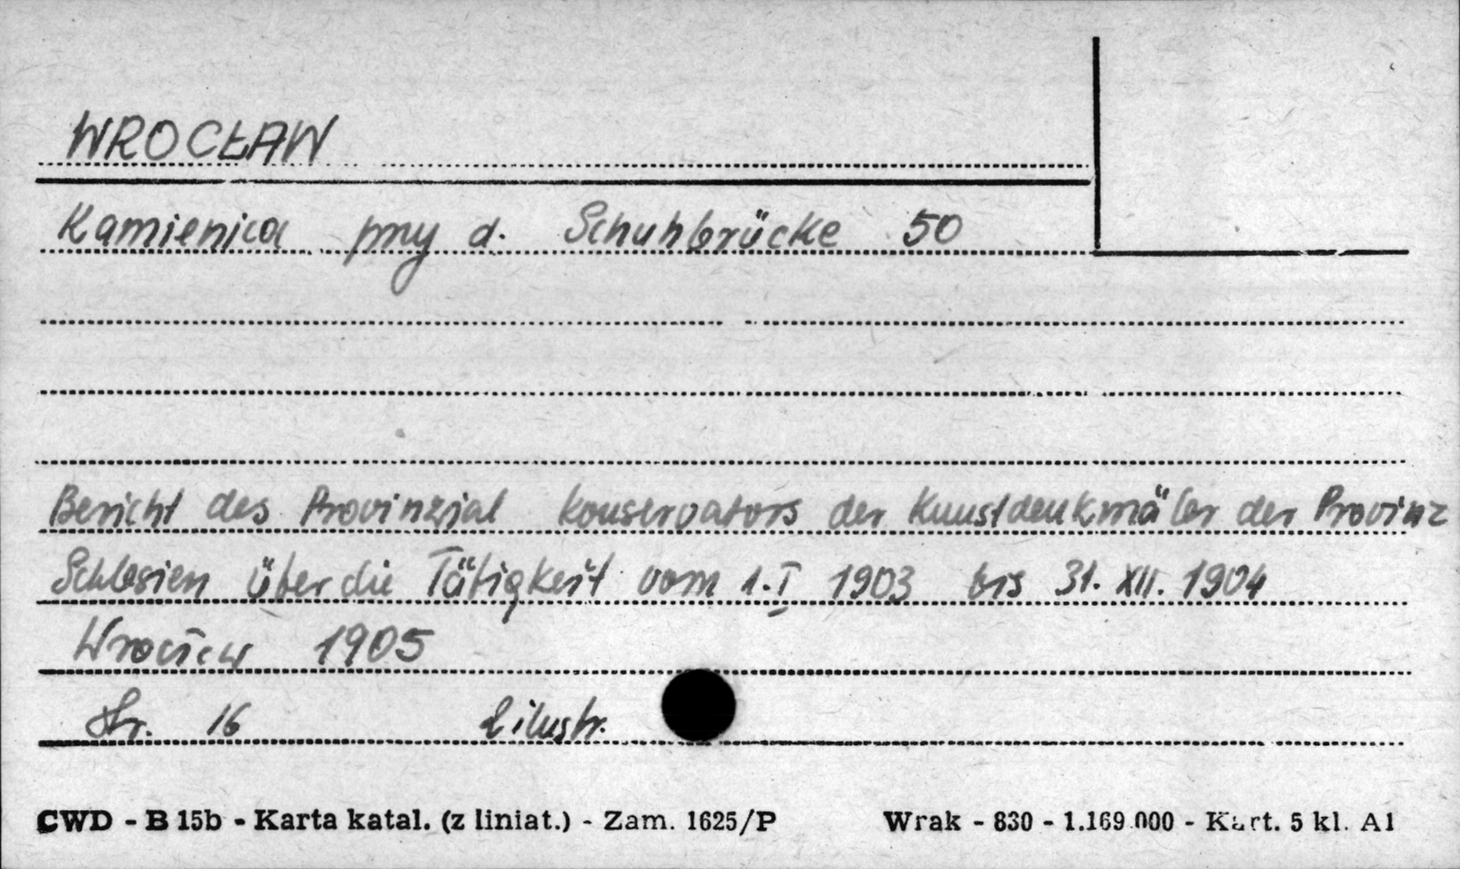 WROCŁAW
Kamienica przy d. Schuhbrücke 50
Bericht des Provinzial konservators der Kunstdenkmäler der Provinz
Schlesien über die Tätigkeit vom 1.I 1903 bis 31. XII. 1904
Wrocław 1905
Str. 16 ilustr.
CWD - B 15b - Karta katal. (z liniat.) - Zam. 1625/P Wrak - 830 - 1.169.000 - Kart. 5 kl. A1